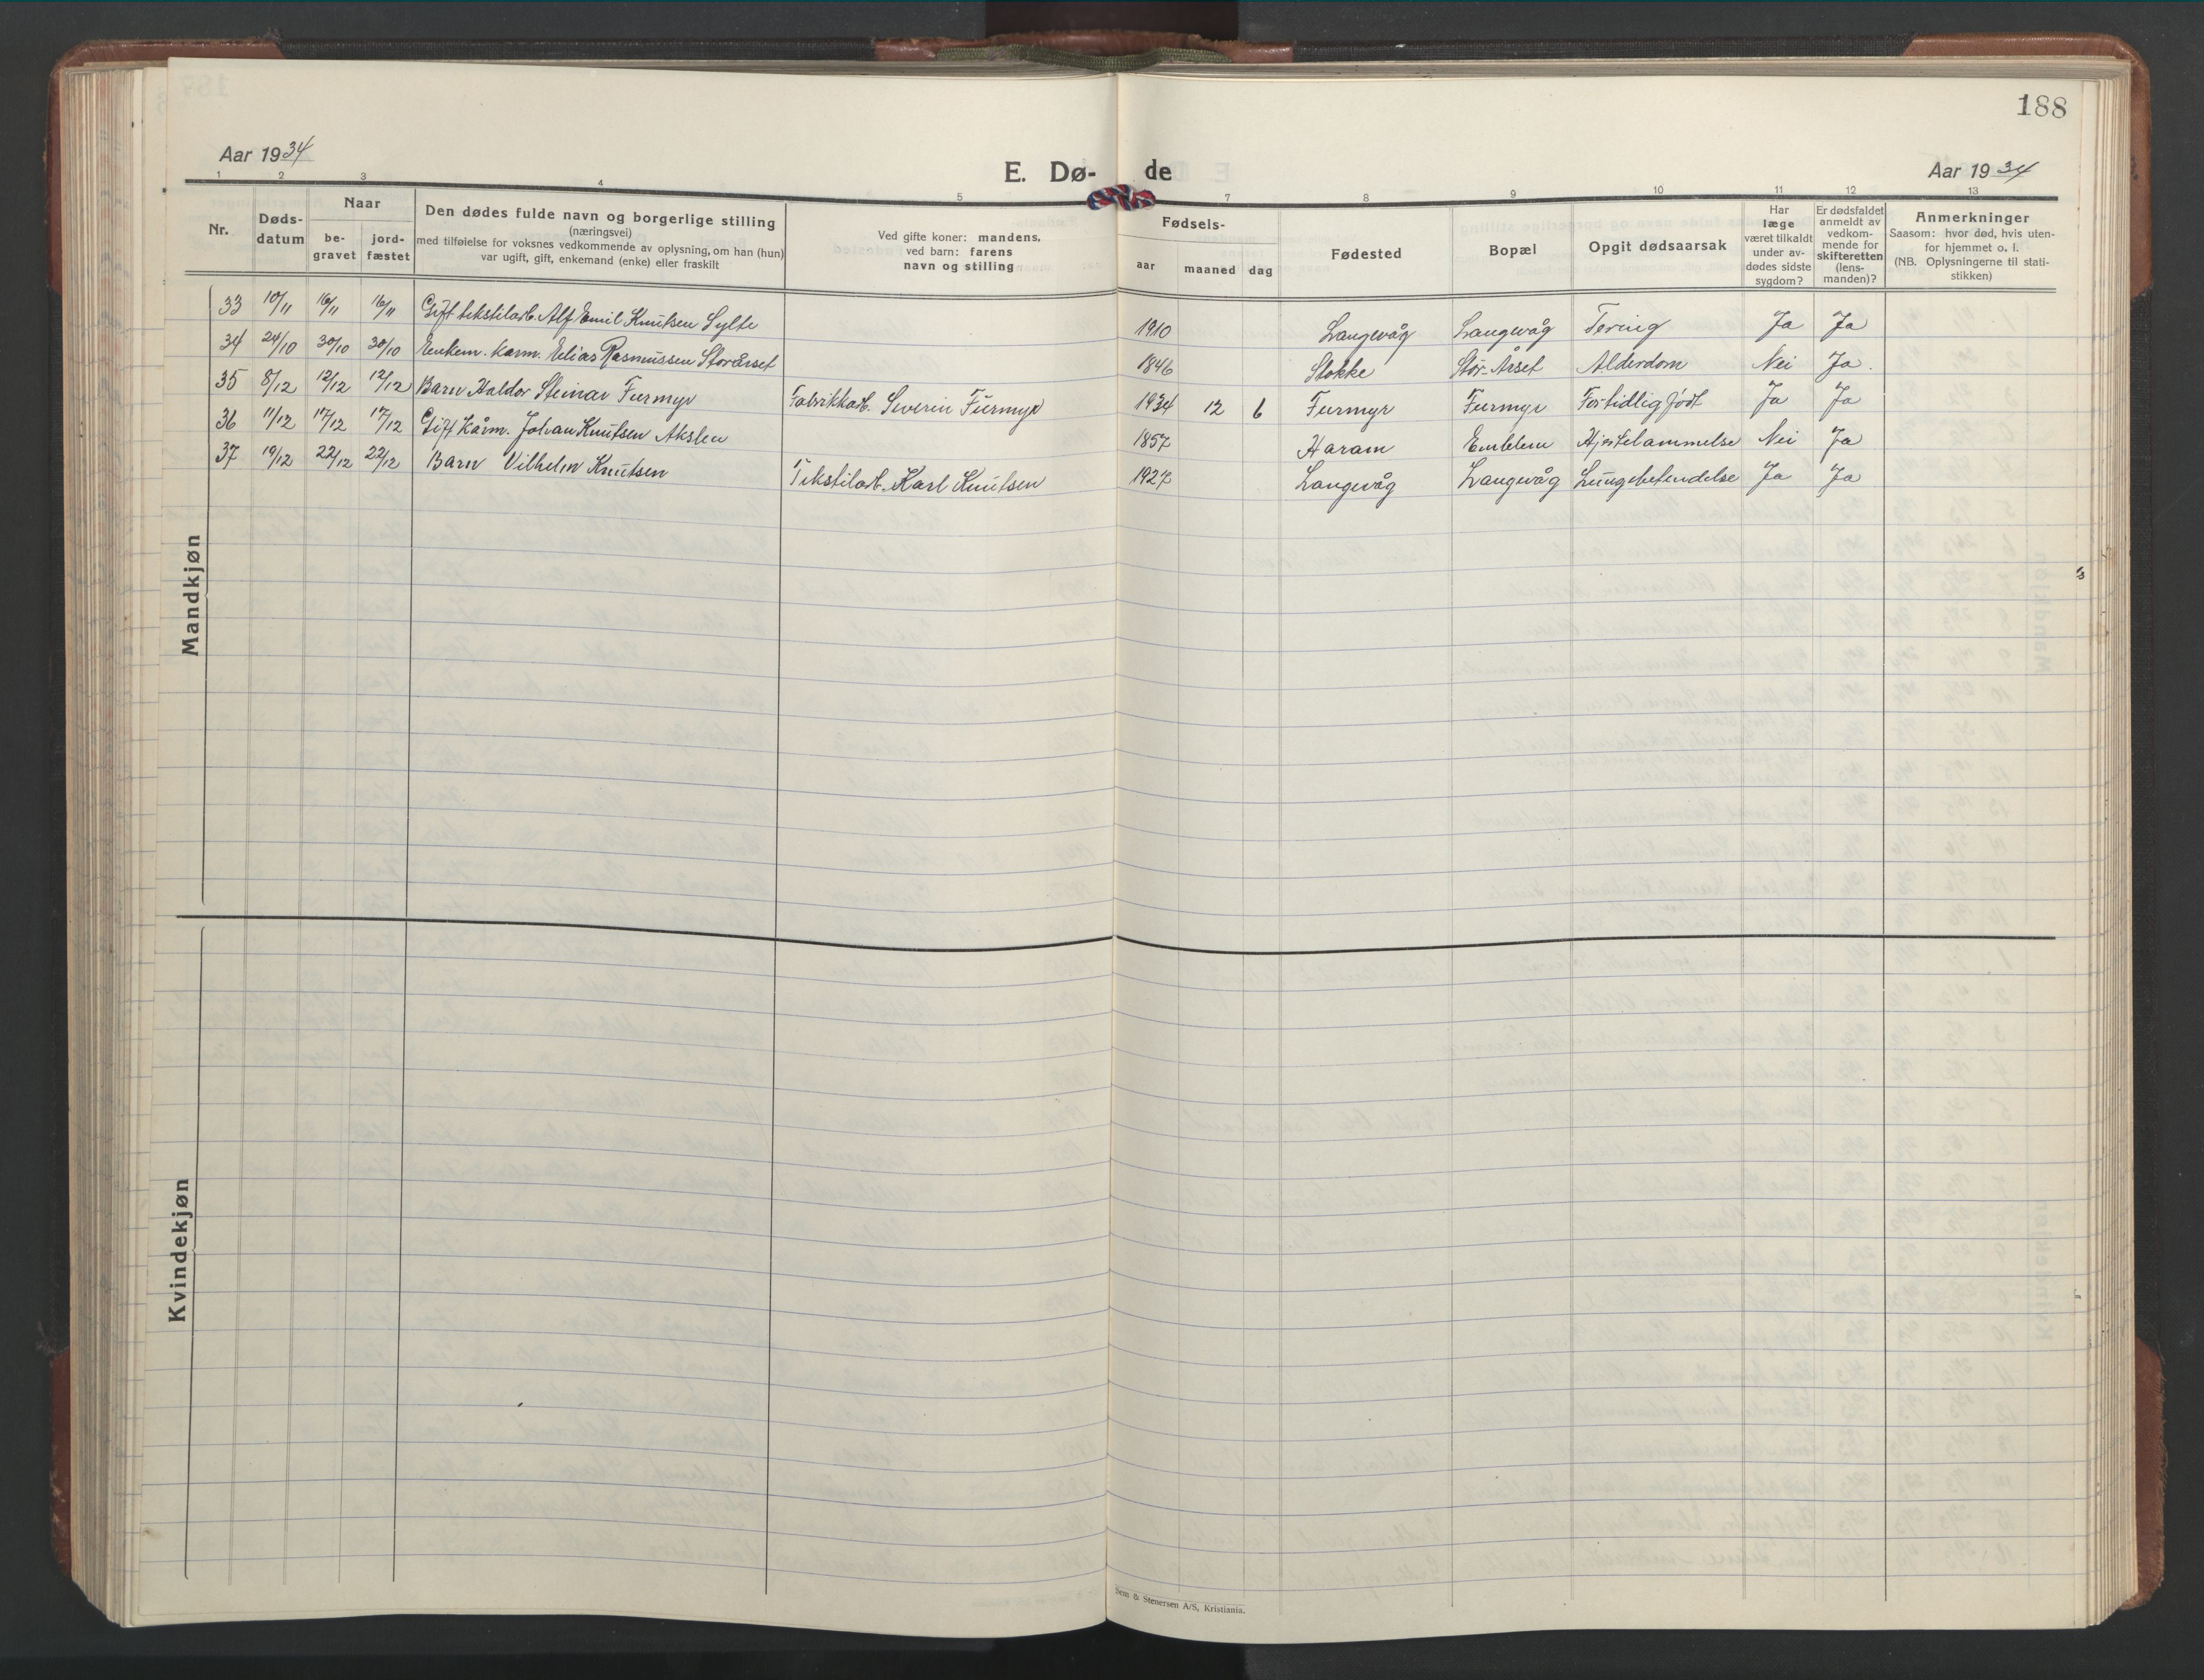 188
Aar 1934
E. Dø-
de
Aar 1934
1 2 3 4 5 7 8 9 10 11 12 13
Nr.
Døds-
datum
Naar
be-
gravet
jord-
fæstet
Den dødes fulde navn og borgerlige stilling
(næringsvei)
med tilføielse for voksnes vedkommende av oplysning, om han (hun)
var ugift, gift, enkemand (enke) eller fraskilt
Ved gifte koner: mandens,
ved barn: farens
navn og stilling
Fødsels-
aar
maaned
dag
Fødested
Bopæl
Opgit dødsaarsak
Har
læge
været tilkaldt
under av-
dødes sidste
sygdom?
Er dødsfaldet
anmeldt av
vedkom-
mende for
skifteretten
(lens-
manden)?
Anmerkninger
Saasom: hvor død, hvis uten-
for hjemmet o. l.
(NB. Oplysningerne til stati-
stikken)
Mandkjøn
33 10/11 16/11 16/11 Gift tekstilarb. Alf Emil Knutsen Sylte 1910 Langevåg Langevåg Tering Ja Ja
34 24/10 30/10 30/10 Enkem. kårm. Elias Rasmussen Storårset 1846 Stokke Stor-Årset Alderdom Nei Ja.
35 8/12 12/12 12/12 Barn Haldor Steinar Furmyr Fabrikkarb. Severin Furmyr 1934 12 6 Furmyr Furmyr For tidlig født Ja Ja
36 11/12 17/12 17/12 Gift Kårm. Johan Knutsen Akslen 1857 Haram Emblem Hjertelammelse Nei Ja
37 19/12 22/12 22/12 Barn Vilhelm Knutsen Tekstilarb. Karl Knutsen 1927 Langevåg Langevåg Lungebetendelse Ja Ja
Kvindekjøn
Sem & Stenersen A/S, Kristiania.